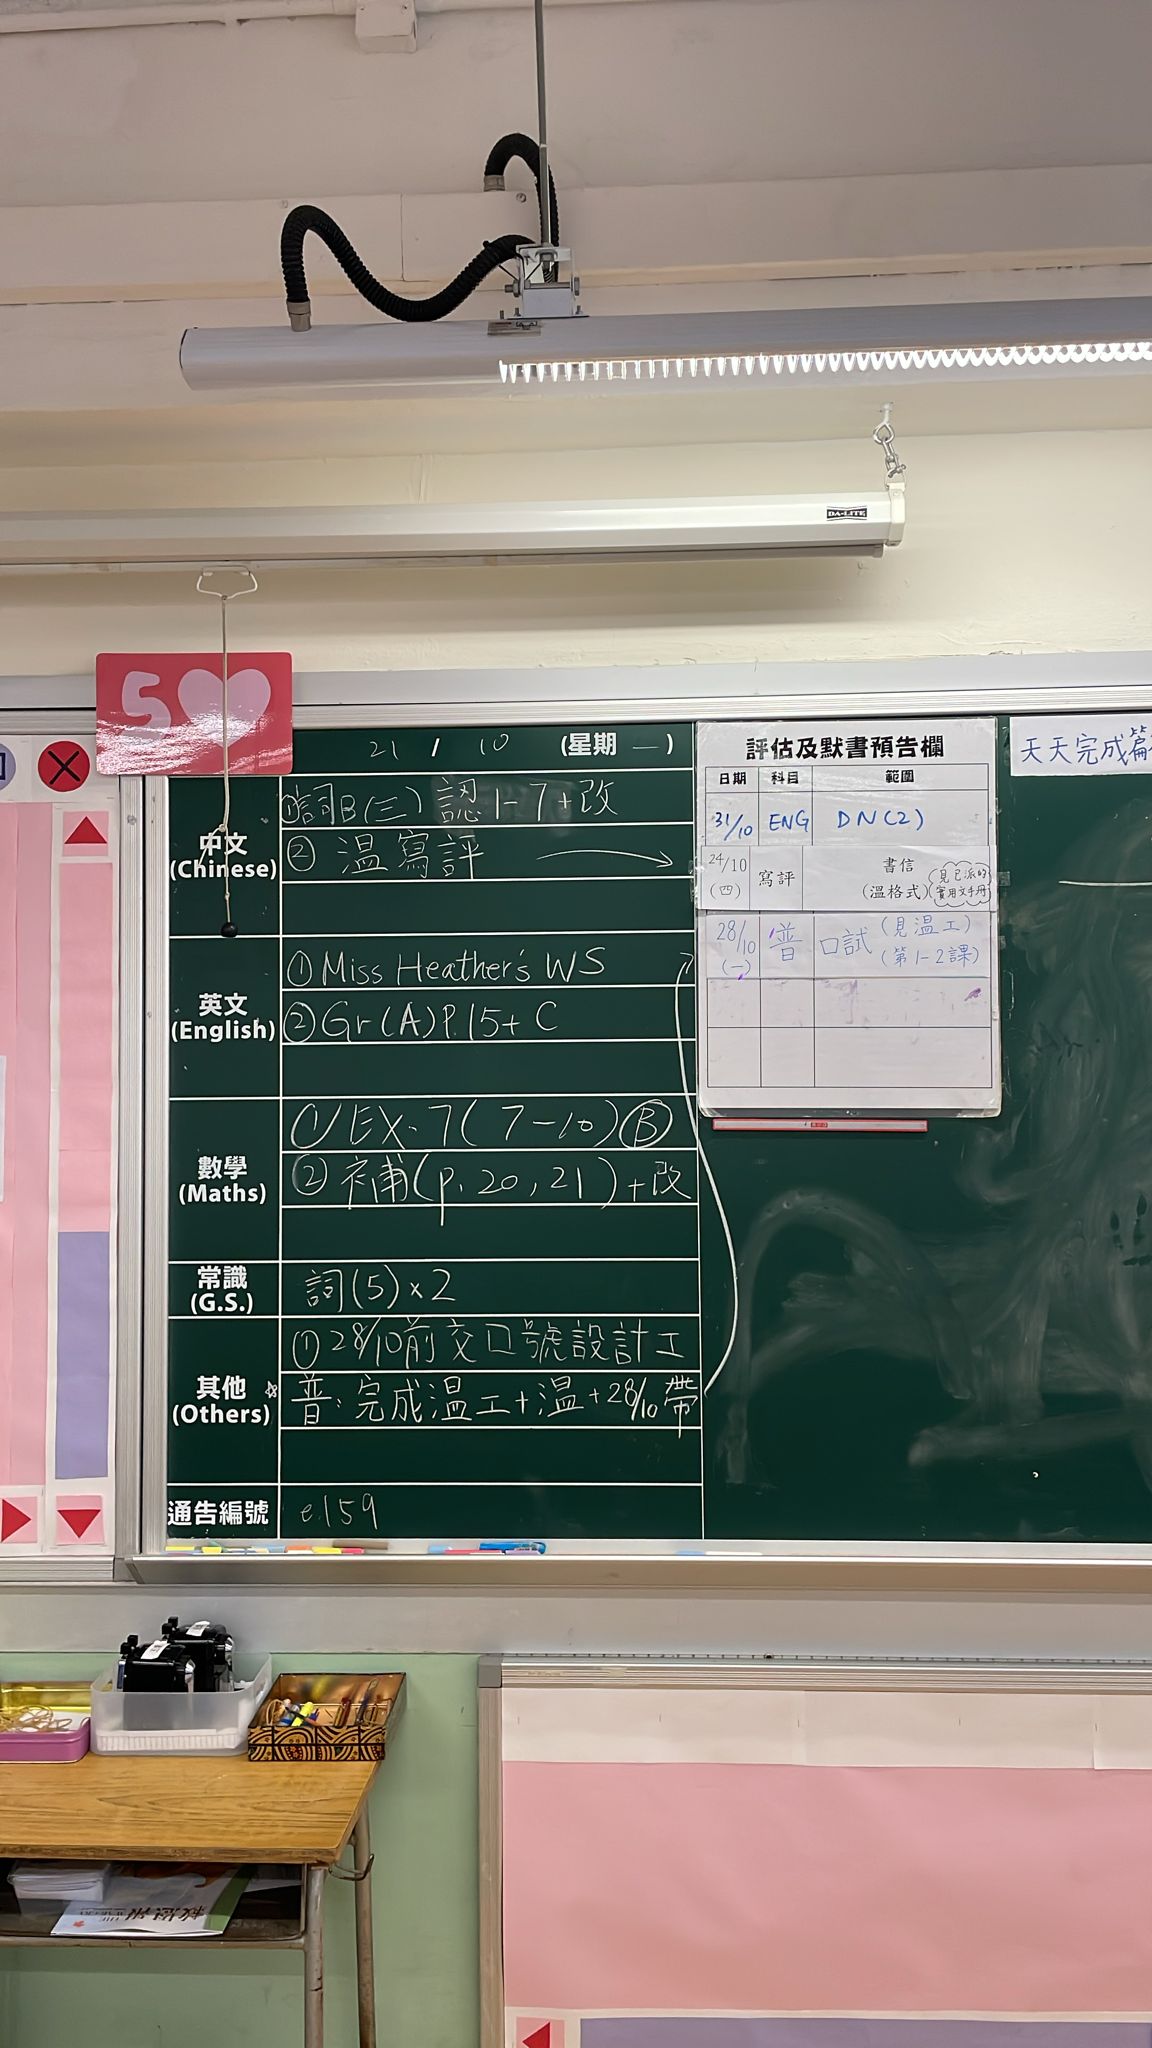 DA-LITE
5
21 / 10 (星期 一)
中文
(Chinese)
①詞B(三) 認1-7+改
② 溫寫評
英文
(English)
①Miss Heather's WS
②Gr(A)P.15+ C
數學
(Maths)
① EX.7(7-10)Ⓑ
② 補(p.20,21)+改
常識
(G.S.)
詞(5)×2
其他
(Others)
①28/10前交口號設計工
☆普:完成溫工+溫+28/10帶
通告編號
e159
評估及默書預告欄
日期 科目 範圍
31/10 ENG DN(2)
24/10 (四) 寫評 書信 (溫格式) 見已派的實用文手冊
28/10 (一) 普 口試 (見溫工) (第1-2課)
天天完成篇